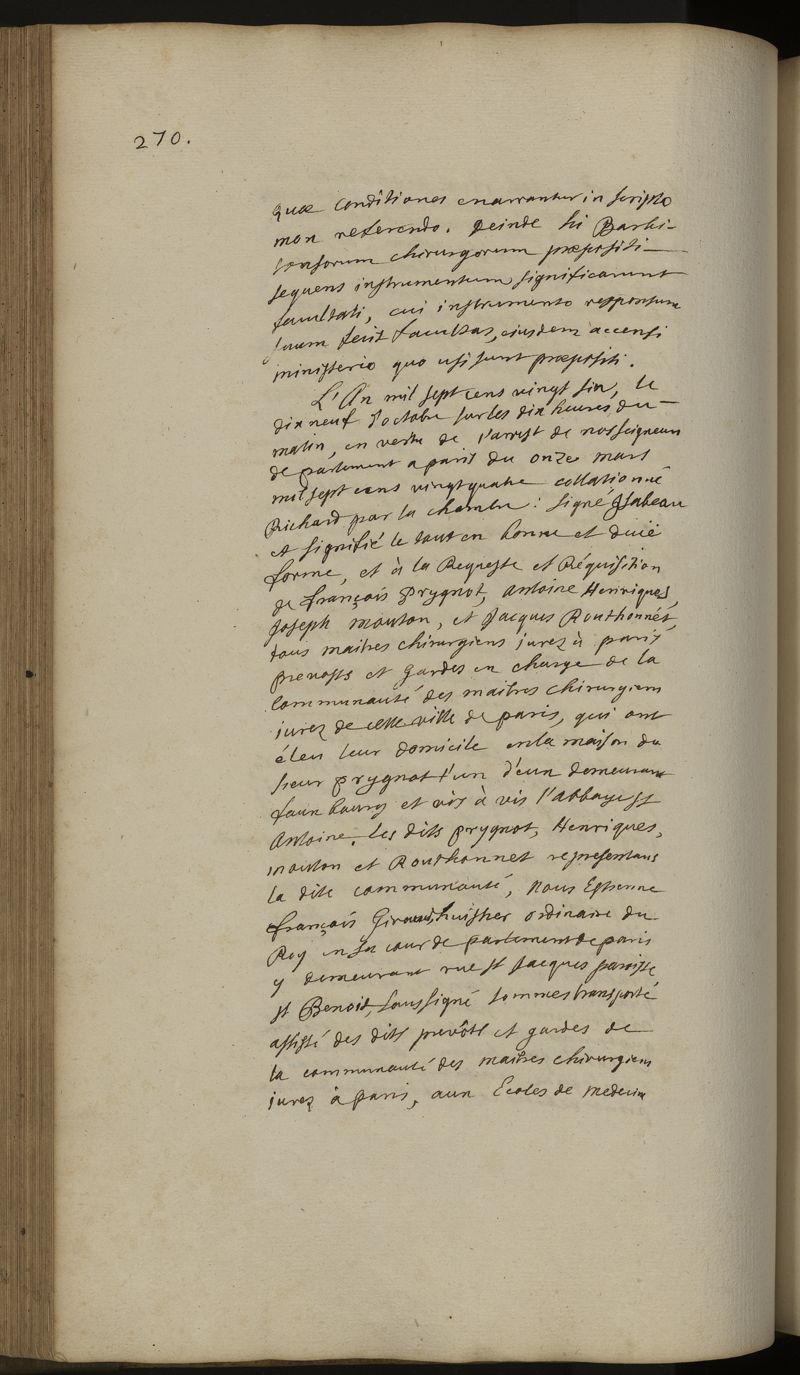 270.
quæ conditiones enarrantur in scripto
mox referendo. Deinde hi Barbi-
tonsorum chirurgorum præpositi
sequens instrumentum significarunt
facultati, cui instrumento responsum
suum dedit facultas, eiusdem accensi
ministerio quo usi sunt præpositi.
L'An mil sept cens vingt six, le
dix neuf d'octobre sur les dix heures du
matin, en vertu de l'arrest de nosseigneurs
de parlement a paris du onze mars
mil sept cens vingt quatre collationné
Richard par la chambre: signé Ysabeau
et signifié le tout en bonne et duüe
forme, et à la Requeste et Réquisition
de françois prygnot, Antoine Henriques,
Joseph Mouton, et Jacques Routhonnét,
tous maitres chirurgiens jurez à paris
prevosts et gardes en charge de la
communauté des maitres chirurgiens
jurez de cette ville de paris, qui ont
éleu leur domicile en la maison du
sieur prygnot l'un d'eux demeurant
faux bourg et vis à vis l'abbaye st
Antoine. les dits prygnot, Henriques,
mouton et Routhonnet representans
la dite communauté, Nous Estienne
françois huissier ordinaire du
Roy en sa cour de parlement de paris
y demeurant rue st Jacques paroisse
st Benoit, soussigné sommes transporté
assisté des dits prevôts et gardes de
la communauté des maitres chirurgiens
jurez à paris, aux Ecoles de medecin